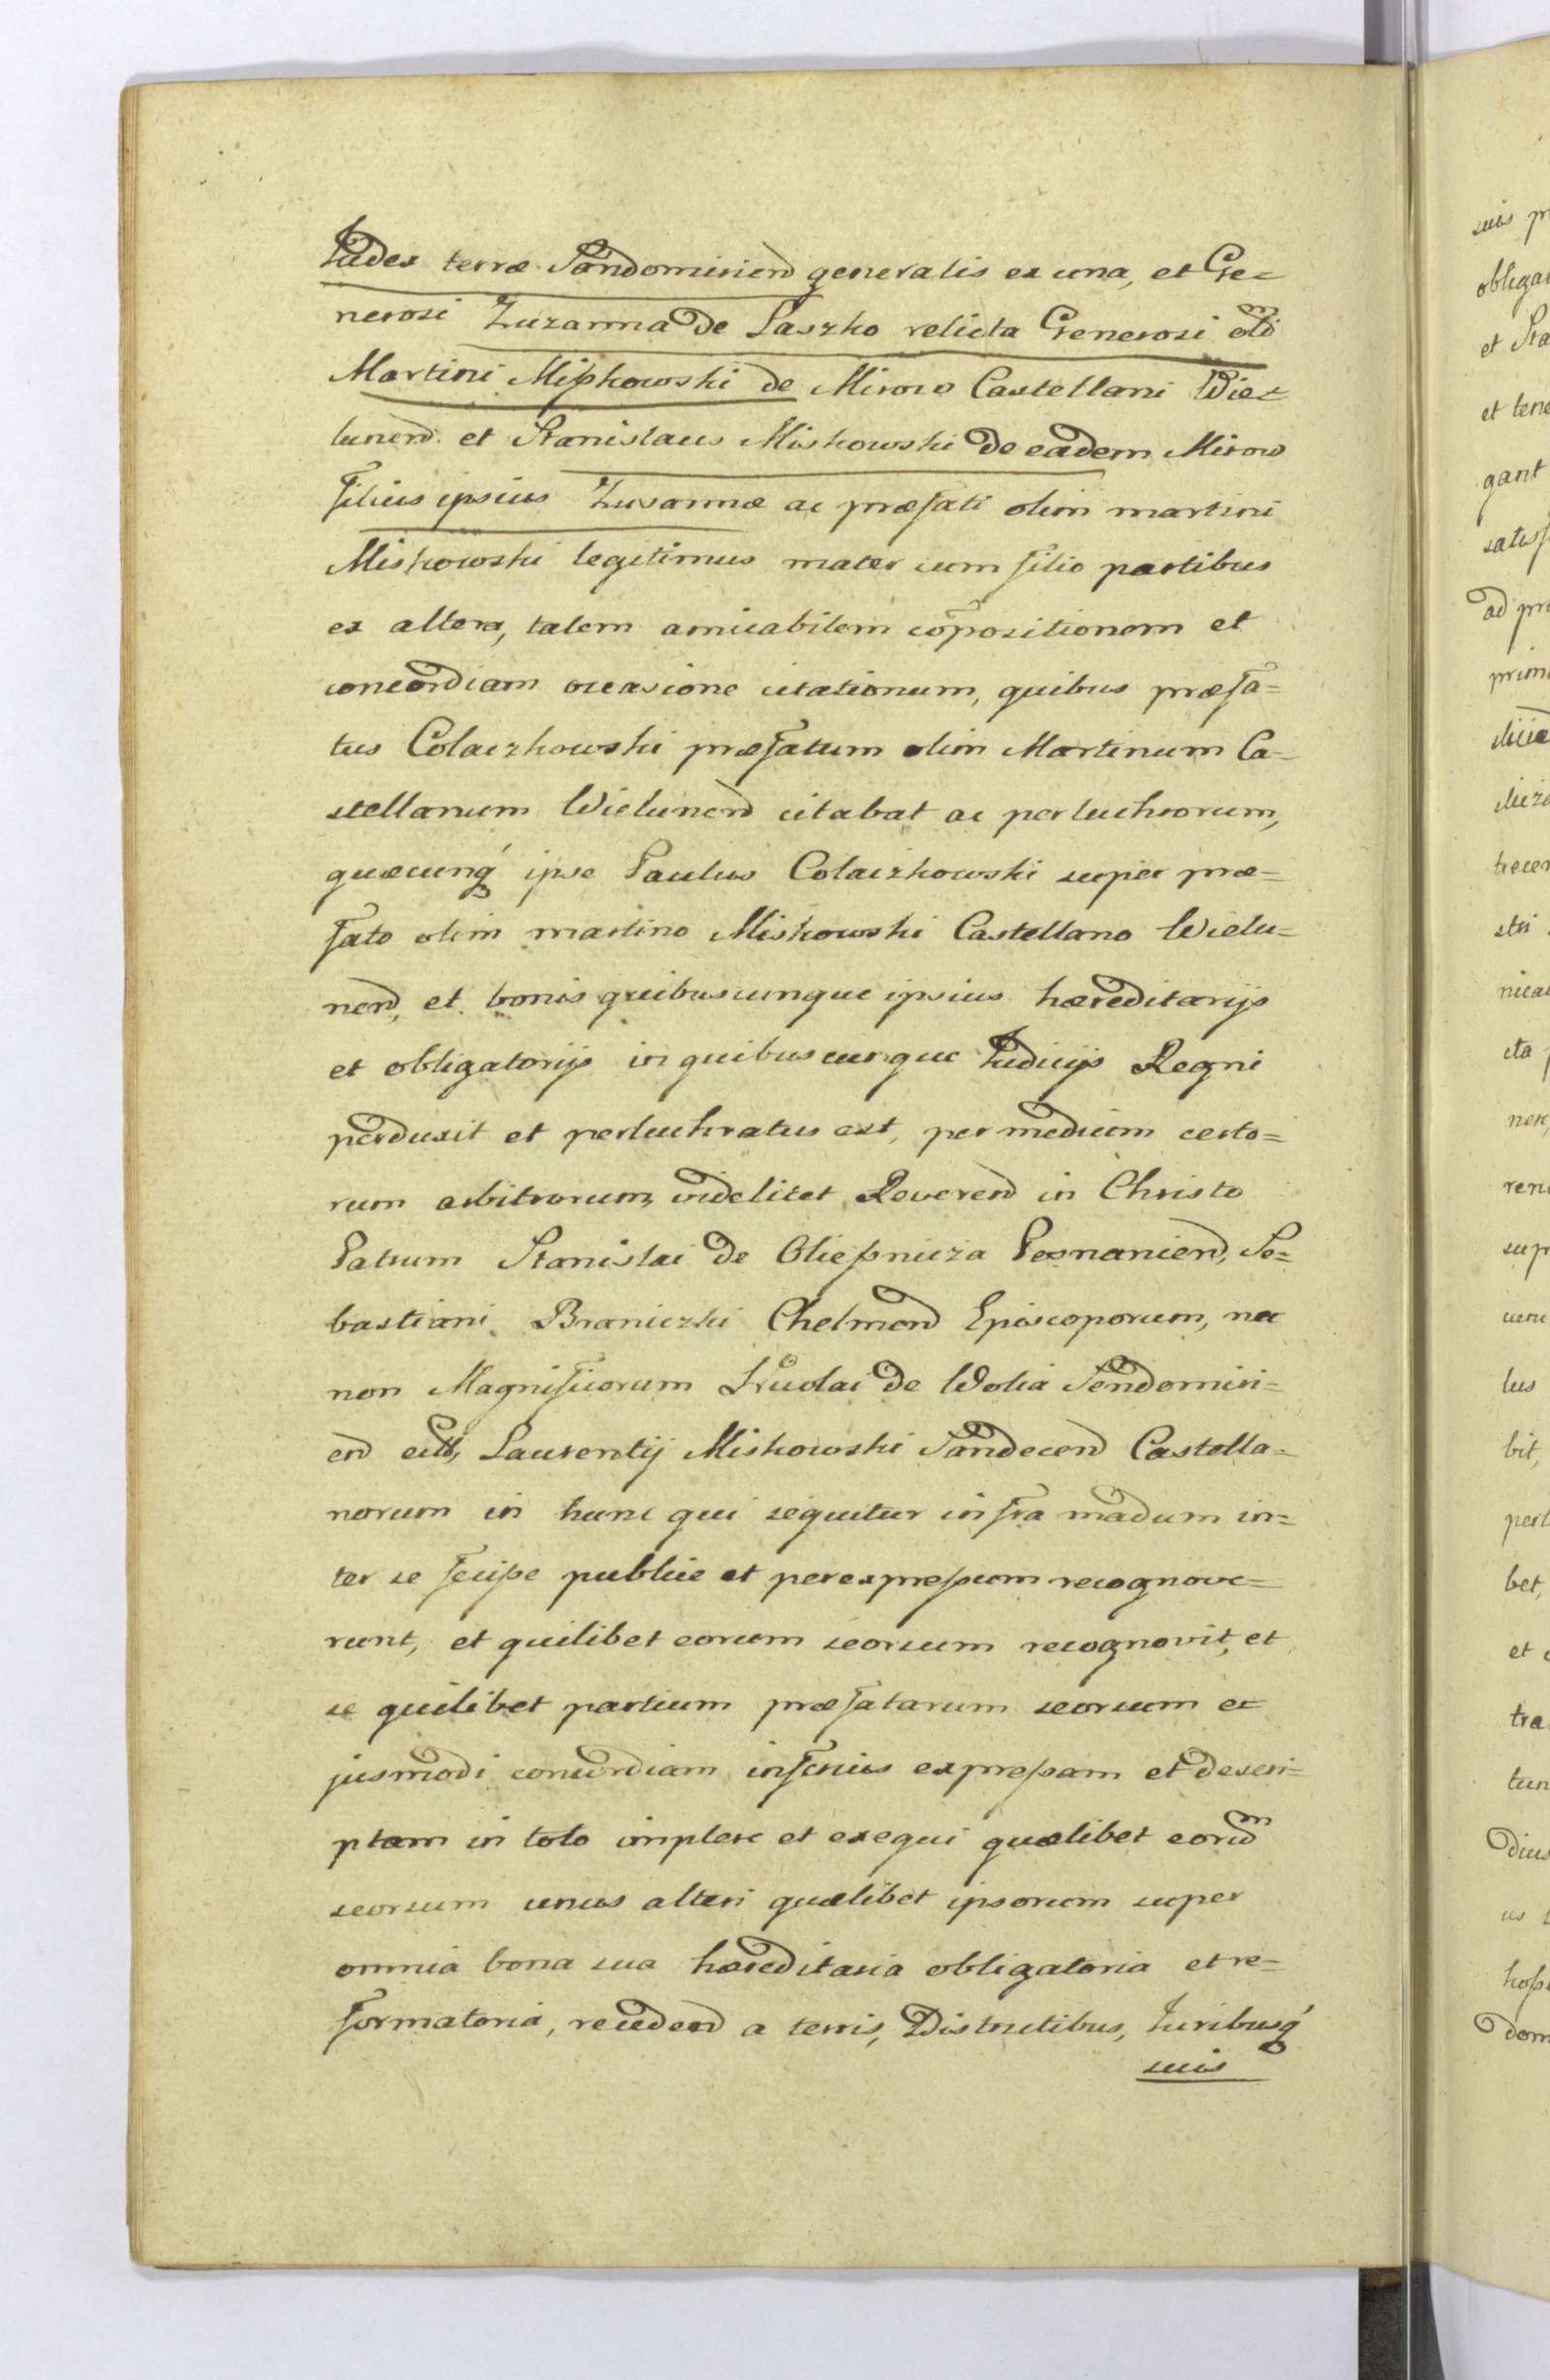 Judex terræ Sandomirien̄ generalis ex una, et Ge=
nerosi Zuzanna de Paszko relicta Generosi oli͠m
Martini Mißkowski de Mirow Castellani Wie=
lunen̄. et Stanislaus Miskowski de eadem Mirow
filius ipsius Zusannæ ac præfati olim martini
Miskowski legitimus mater cum filio partibus
ex altera, talem amicabilem co͠positionem et
concordiam occasione citationum, quibus præfa=
tus Colaczkowski præfatum olim Martinum Ca=
stellanum Wielunen̄ citabat ac perluchrorum,
quæcunq́ ipse Paulus Colaczkowski super præ=
fato olim martino Miskowski Castellano Wielu=
nen̄, et bonis quibuscunque ipsius hæreditarijs
et obligatorijs in quibuscunque Judicijs Regni
perduxit et perluchratus est, per medium certo=
rum arbitrorum, videlicet Reveren̄ in Christo
Patrum Stanislai de Oließnicza Posnanien̄, Se=
bastiani Braniczki Chelmen̄ Episcoporum, nec
non Magnificorum Nicolai de Wolia Sendomiri=
en̄ Laurentij Miskowski Sandecen̄ Castella=
norum in hunc qui sequitur infra madum in=
ter se fciße publice et per expreßum recognove=
runt, et quilibet eorum seorsum recognovit, et
se quilibet partium præfatarum seorsum e=
jusmodi concordiam inferius expreßam et descri=
ptam in toto implere et exequi quælibet eoru͠m
seorsum unus alteri quælibet ipsorum super
omnia bona sua hæreditaria obligatoria et re=
formatoria, receden̄ a terris, Districtibus, Juribusq́
suis
suis
obliga
et Sta
et tene
gant
satisf
ad pr
bit,
bet,
et
tra